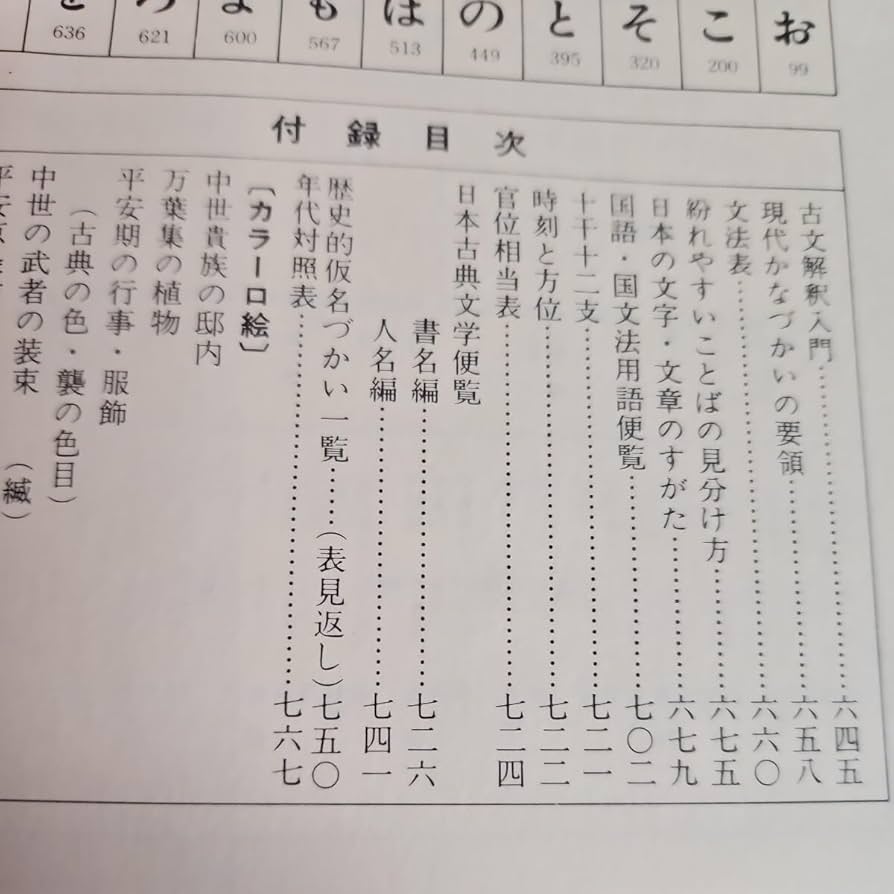 お こ そ と の は も よ ろ を
99 200 320 395 449 513 567 600 621 636
付録目次
古文解釈入門……六四五
現代かなづかいの要領……六五八
文法表……六六〇
紛れやすいことばの見分け方……六七五
日本の文字・文章のすがた……六七九
国語・国文法用語便覧……七〇二
十干十二支……七二一
時刻と方位……七二二
官位相当表……七二四
日本古典文学便覧
書名編……七二六
人名編……七四一
歴史的仮名づかい一覧……(表見返し)七五〇
年代対照表……七六七
〔カラー口絵〕
中世貴族の邸内
万葉集の植物
平安期の行事・服飾
(古典の色・襲の色目)
中世の武者の装束(縅)
平安京